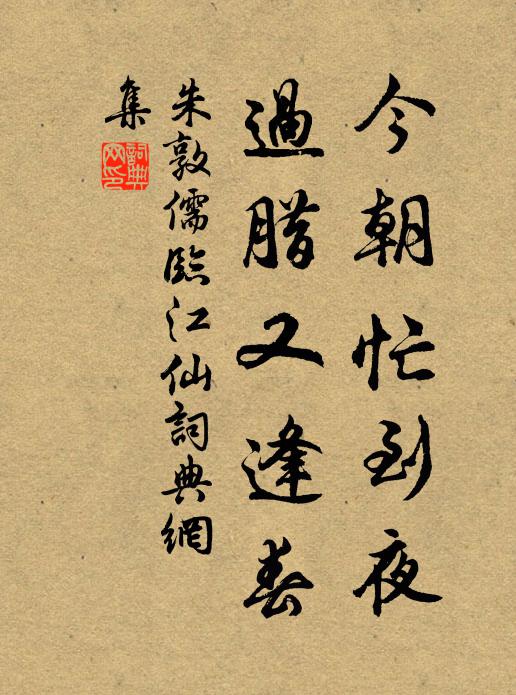 今朝忙到夜
過腊又逢春
朱敦儒臨江仙詞典網
集
詞典網印